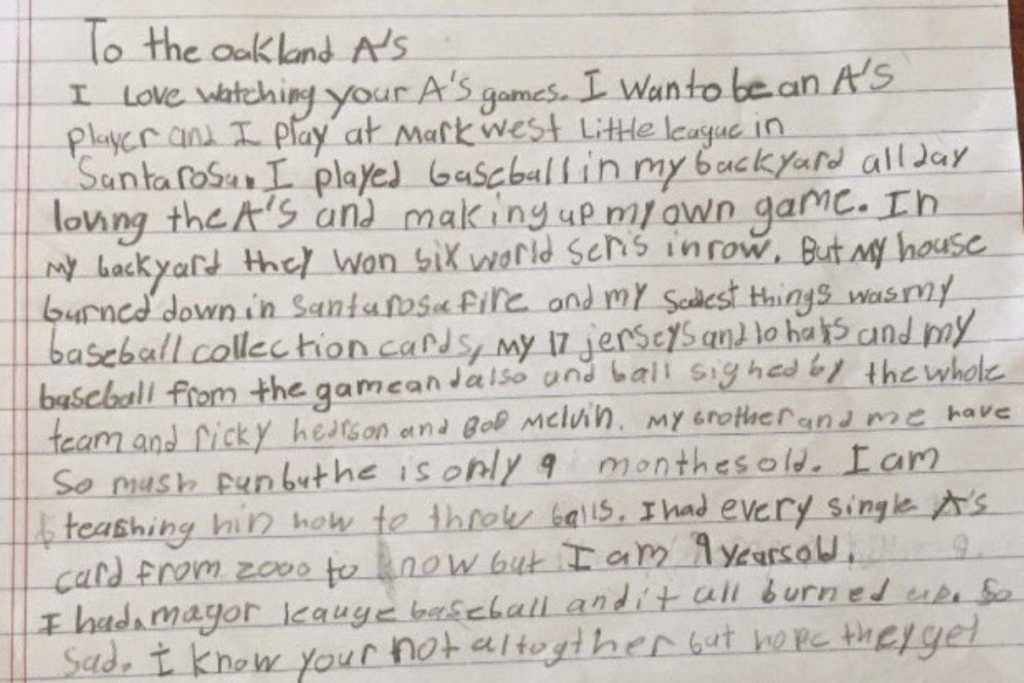 To the oakland A's
I Love watching your A's games. I Wanto be an A's
player and I play at Mark west Little league in
Santarosa. I played baseball in my backyard all day
loving the A's and making up my own game. In
my backyard they won six world seris in row. But my house
burned down in Santarosa fire and my sadest things was my
baseball collection cards, my 17 jerseys and 10 hats and my
baseball from the game and also and ball signed by the whole
team and ricky hearson and Bob Melvin. my brother and me have
So mush fun but he is only 9 monthes old. I am
teashing hin how to throw balls. I had every single A's
card from 2000 to now but I am 9 years old.
I had a mayor leauge baseball and it all burned up. So
sad. I know your not altogther but hope they get